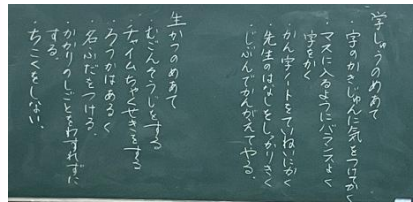 学しゅうのめあて
・字のかきじゅんに気をつけてかく
・マスに入るようにバランスよく
字をかく
・かん字ノートをていねいにかく
・先生のはなしをしっかりきく
・じぶんでかんがえてやる。
生かつのめあて
・むごんそうじをする
・チャイムちゃくせきをする
・ろうかはあるく
・名ふだをつける。
・かかりのしごとをわすれずに
する。
・ちこくをしない。